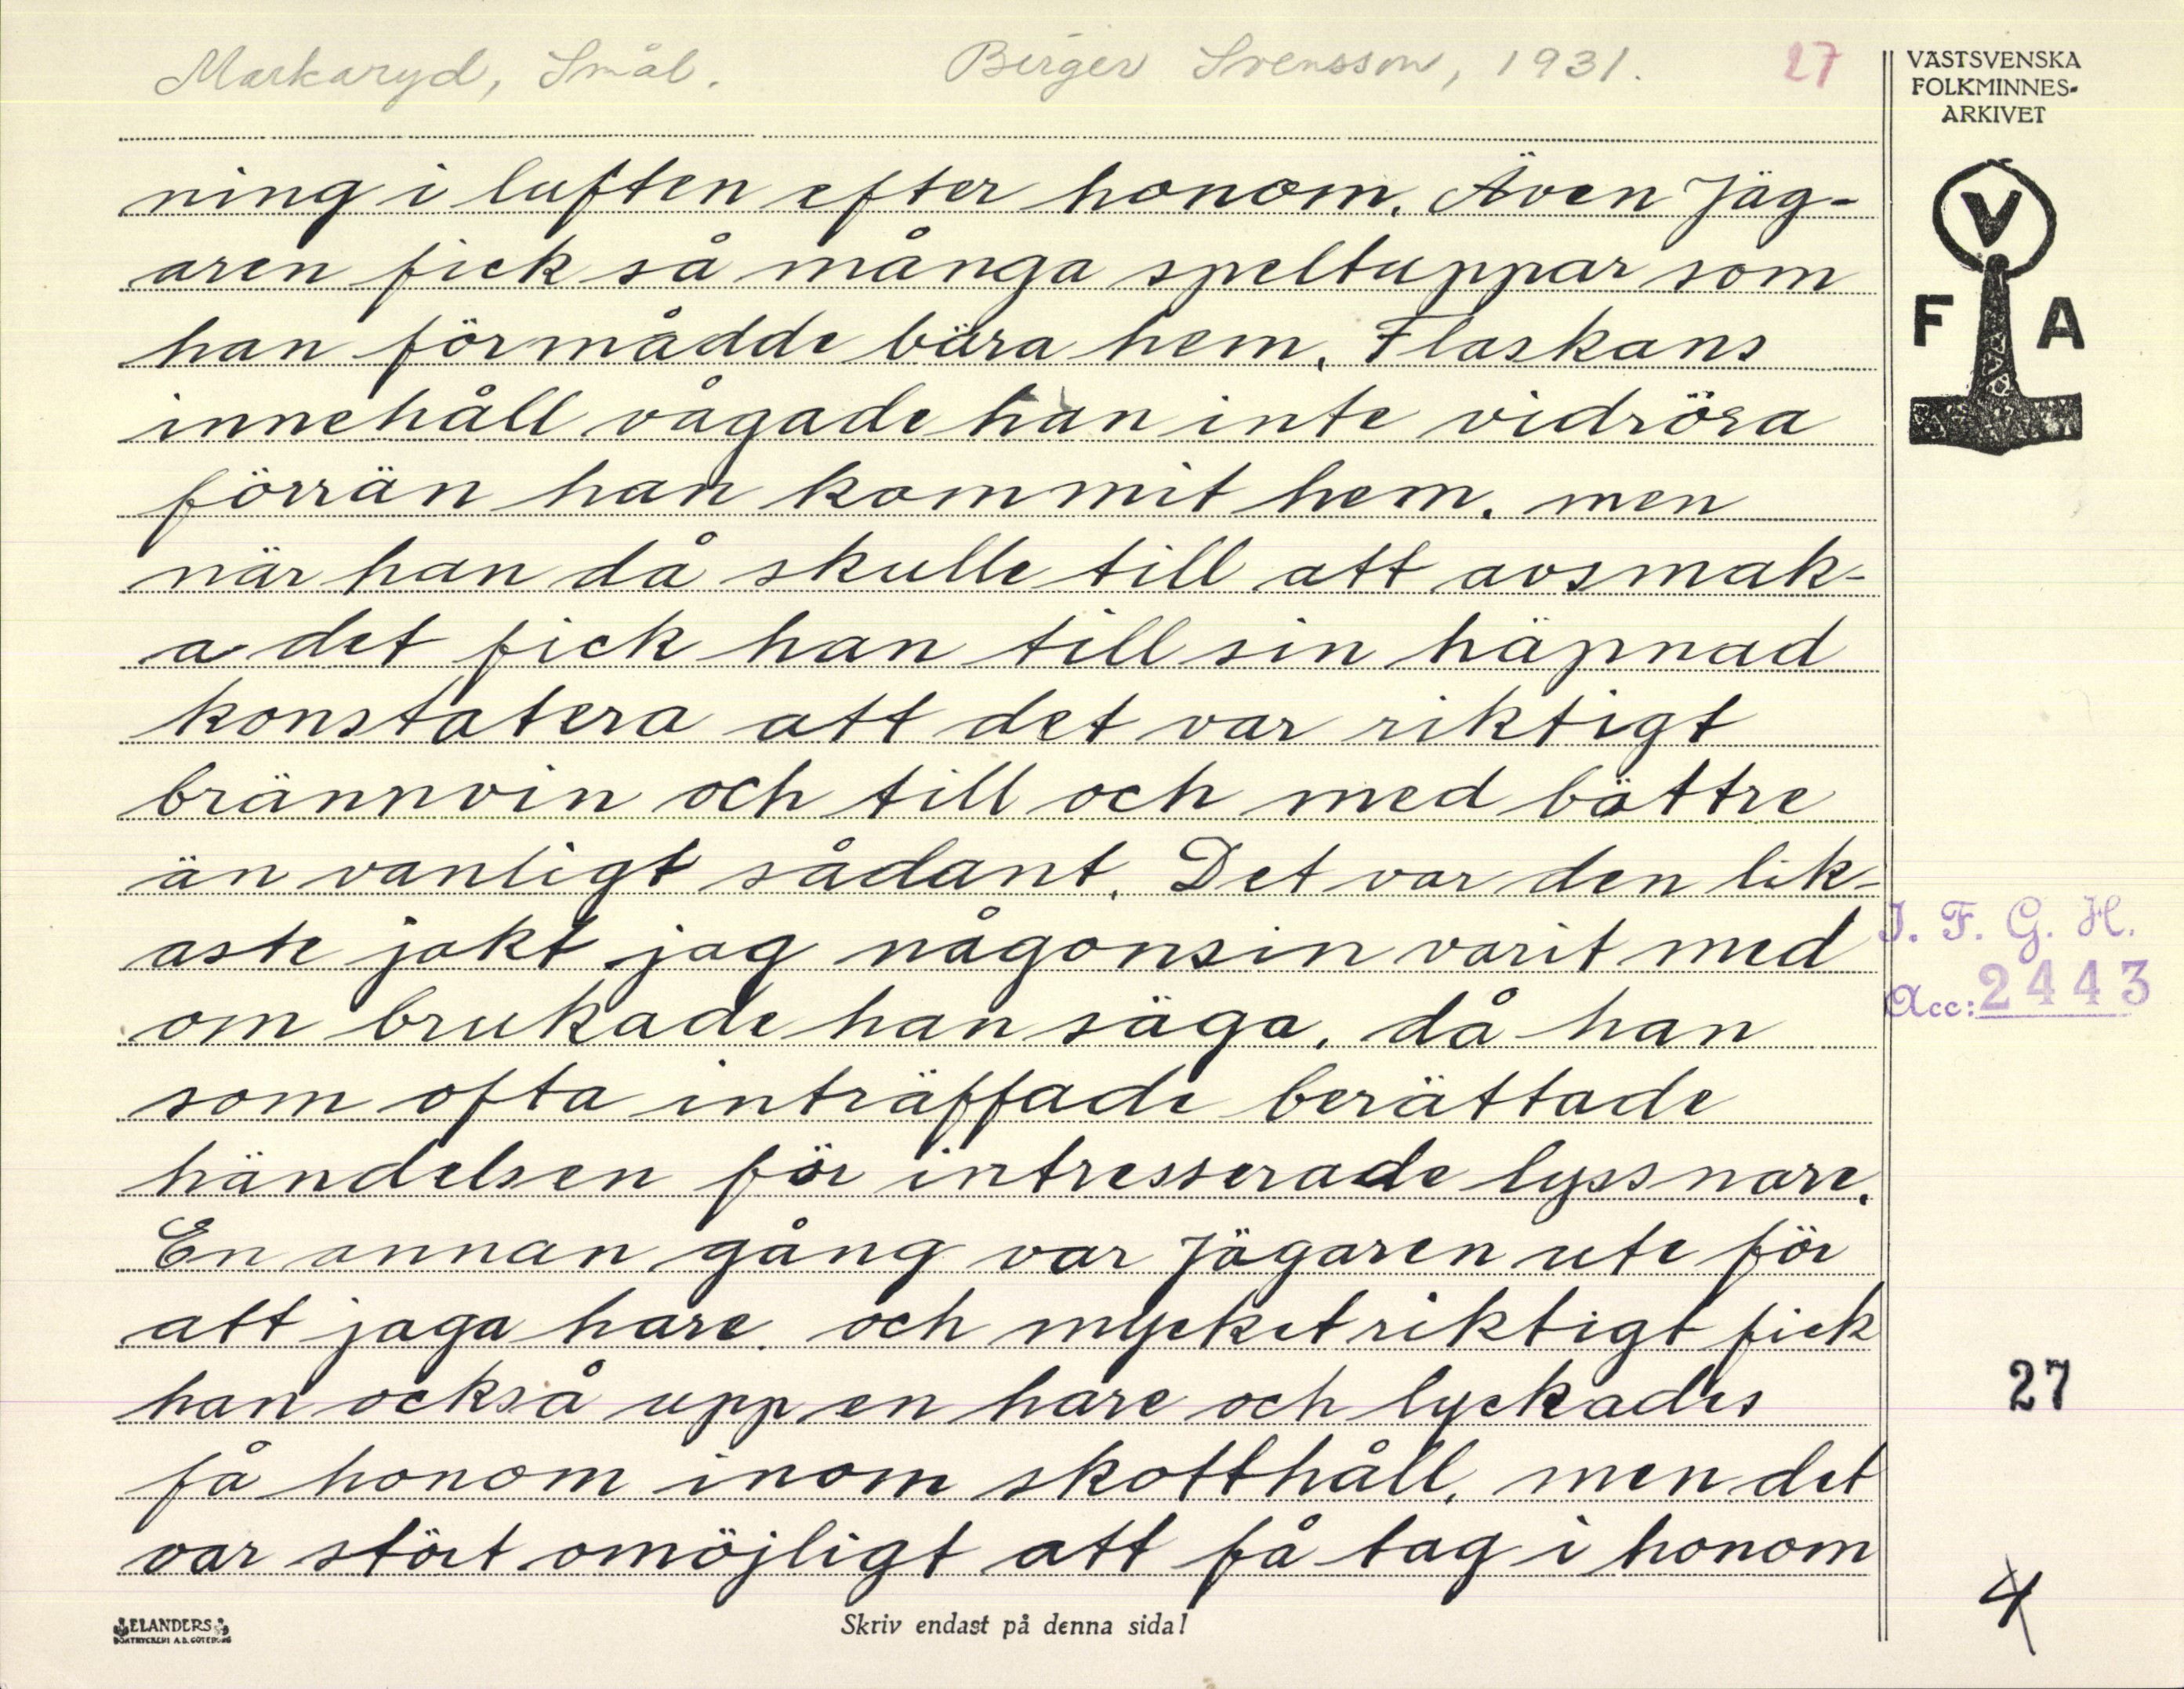 Markaryd, Smål. Birger Svensson, 1931. 27
VÄSTSVENSKA
FOLKMINNES-
ARKIVET
V
F A
ning i luften efter honom. Även Jäg-
aren fick så många speltuppar som
han förmådde bära hem. Flaskans
innehåll vågade han inte vidröra
förrän han kommit hem. men
när han då skulle till att avsmak-
a det fick han till sin häpnad
konstatera att det var riktigt
brännvin och till och med bättre
än vanligt sådant. Det var den lik-
aste jakt jag någonsin varit med
om brukade han säga, då han
som ofta inträffade berättade
händelsen för intresserade lyssnare.
En annan gång var Jägaren ute för
att jaga hare. och mycket riktigt fick
han också upp en hare och lyckades
få honom inom skotthåll, men det
var stört omöjligt att få tag i honom
I. F. G. H.
Acc: 2443
27
4
ELANDERS
BOKTRYCKERI A.B. GÖTEBORG
Skriv endast på denna sida!